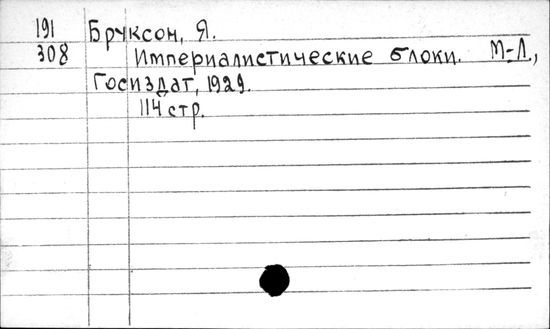 191 Бруксон, Я.
308 Империалистические блоки. М-Л,
Госиздат, 1929.
114 стр.